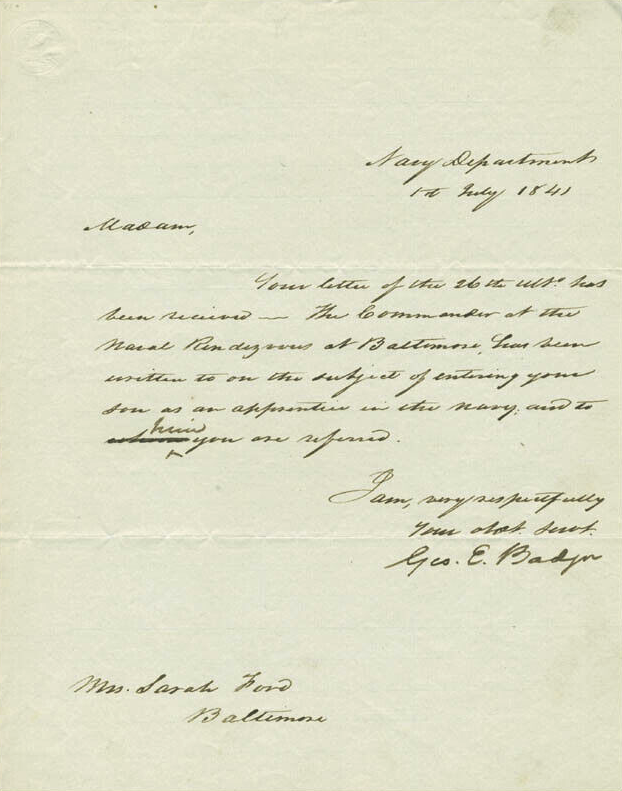 Navy Department
1st July 1841
Madam,
Your letter of the 26th Ulto. has
been received — The Commander at the
Naval Rendezvous at Baltimore, has been
written to on the subject of entering your
son as an apprentice in the navy, and to
whom him you are referred.
I am, very respectfully
Your obdt. servt.
Geo. E. Badger
Mrs. Sarah Ford
Baltimore